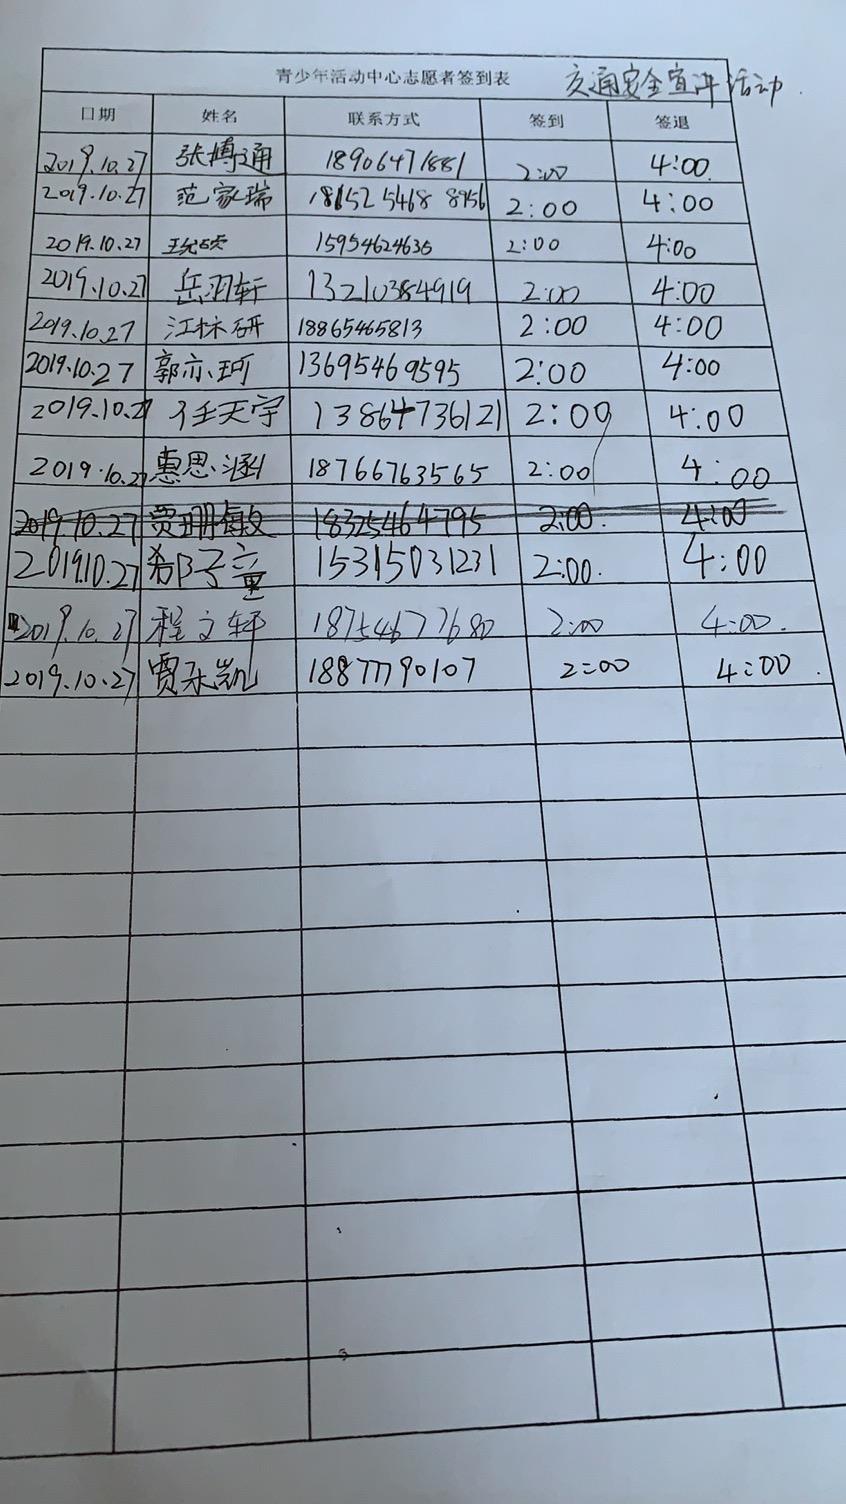 青少年活动中心志愿者签到表 交通安全宣讲活动
日期 姓名 联系方式 签到 签退
2019.10.27 张博通 18906471881 2:00 4:00
2019.10.27 范家瑞 2:00 4:00
2019.10.27 15954624635 2:00 4:00
2019.10.27 岳羽轩 13210384919 2:00 4:00
2019.10.27 江林研 18865465813 2:00 4:00
2019.10.27 郭亦珂 13695469595 2:00 4:00
2019.10.27 任天宇 13864736121 2:00 4:00
2019.10.27 惠思涵 18766763565 2:00 4:00
2019.10.27 18325464795 2:00 4:00
2019.10.27 15315031231 2:00 4:00
2019.10.27 程文轩 18754677680 2:00 4:00
2019.10.27 18877790107 2:00 4:00